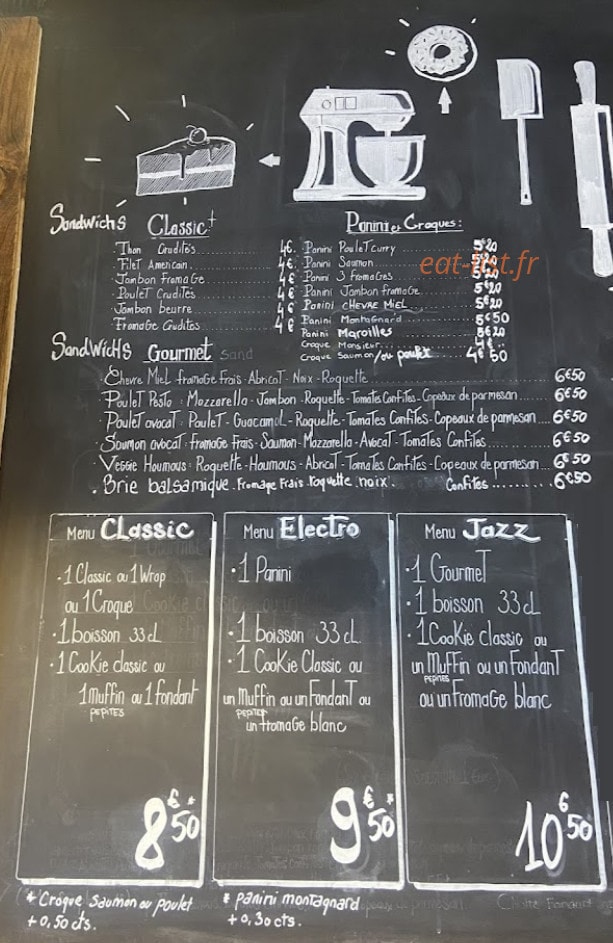 Sandwichs Classic+
Thon Crudités 4€
Filet Americain 4€
Jambon fromaGe 4€
PouleT CrudiTes 4€
Jambon beurre 4€
FromaGe Crudites 4€
Panini et Croques:
Panini PouleT curry 5€20
Panini Saumon 5€20
Panini 3 fromaGes 5€20
Panini Jambon fromaGe 5€20
Panini CHEVRE MieL 5€20
Panini MontaGnard 5€50
Panini Maroilles 5€20
Croque Monsieur 4€
Croque Saumon /ou poulet 4€50
eat-list.fr
SandwicHs Gourmet
Chevre MieL fromaGe frais-Abricot-Noix-Roquette 6€50
PouleT Pesto: Mozzarella-Jambon-Roquette-TomaTes ConfiTes-Copeaux de parmesan 6€50
PouleT avocaT: PouleT-Guacamol-Roquette-TomaTes ConfiTes-Copeaux de parmesan 6€50
Saumon avocaT: fromaGe frais-Saumon-Mozzarella-Avocat-TomaTes Confites 6€50
Veggie Houmous: Roquette-Houmous-AbricoT-TomaTes ConfiTes-Copeaux de parmesan 6€50
. Brie balsamique. Fromage Frais. Roquette. noix. Confites 6€50
Menu CLassic
·1 Classic ou 1 Wrap
ou 1 Croque
·1 boisson 33 cL
·1 CooKie classic ou
1 muffin ou 1 fondant
PEPITES
8€*50
Menu Electro
·1 Panini
·1 boisson 33 cL
·1 CooKie Classic ou
un Muffin ou un FondanT ou
PEPITES
un fromaGe blanc
9€*50
Menu Jazz
·1 GourmeT
·1 boisson 33 cL
·1 CooKie classic ou
un Muffin ou un FondanT
PEPITES
ou un FromaGe blanc
10€50
* Croque saumon ou poulet
+ 0,50 cts.
* panini montagnard
+ 0,30 cts.